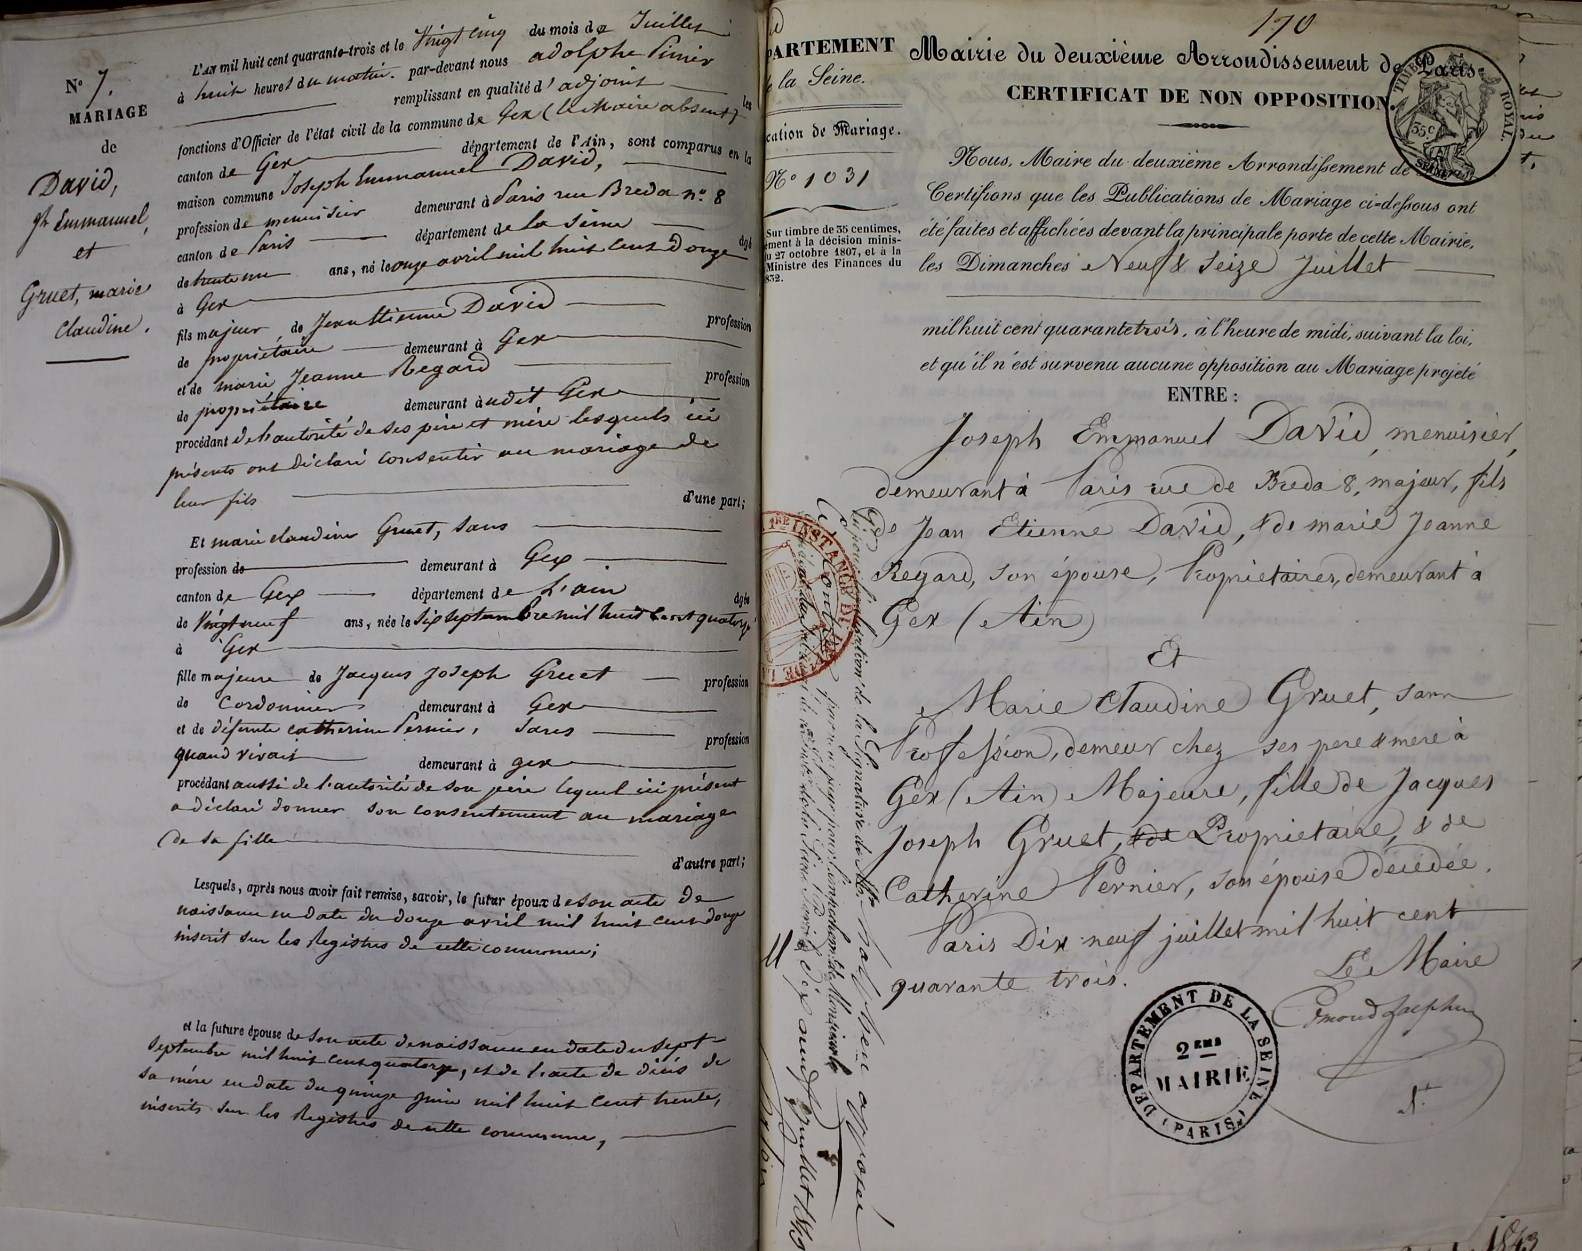 N° 7.
MARIAGE
de
David,
Jh Emmanuel,
et
Gruet, marie
Claudine.
L'AN mil huit cent quarante-trois et le Vingt cinq du mois de Juillet
à huit heures du matin. par-devant nous adolphe
remplissant en qualité d'adjoint les
fonctions d'Officier de l'état civil de la commune de Gex (le Maire absent)
canton de Gex département de l'Ain, sont comparus en la
maison commune Joseph Emmanuel David,
profession de menuisier demeurant à Paris rue Breda n° 8
canton de Paris département de la Seine âgé
de trente un ans, né le onze avril mil huit cent Douze
à Gex
fils majeur de Jean Etienne David profession
de propriétaire demeurant à Gex
et de marie Jeanne Regard profession
de propriétaire demeurant audit Gex
procédant de l'autorité de ses père et mère lesquels ici
présents ont déclaré consentir au mariage de
leur fils d'une part;
Et marie claudine Gruet, sans
profession de demeurant à Gex
canton de Gex département de L'ain âgée
de Vingt neuf ans, née le Six septembre mil huit cent quatorze
à Gex
fille majeure de Jacques Joseph Gruet profession
de Cordonnier demeurant à Gex
et de défunte catherine Pernier, sans profession
quand vivait demeurant à gex
procédant aussi de l'autorité de son père lequel ici présent
a déclaré donner son consentement au mariage
de sa fille
d'autre part;
Lesquels, après nous avoir fait remise, savoir, le futur époux de son acte de
naissance en date du douze avril mil huit cent douze
inscrit sur les Registres de cette commune;
et la future épouse de son acte de naissance en date du sept
septembre mil huit cent quatorze, et de l'acte de décès de
sa mère en date du quinze juin mil huit cent trente,
inscrits sur les Registres de cette commune,
170
PARTEMENT
de la Seine.
cation de Mariage.
N° 1031
Sur timbre de 35 centimes,
ément à la décision minis-
u 27 octobre 1807, et à la
Ministre des Finances du
832.
Mairie du deuxième Arrondissement de Paris
CERTIFICAT DE NON OPPOSITION.
TIMBRE ROYAL
35 c
SEINE
Nous, Maire du deuxième Arrondissement de
Certifions que les Publications de Mariage ci-dessous ont
été faites et affichées devant la principale porte de cette Mairie,
les Dimanches Neuf & Seize Juillet
mil huit cent quarante trois, à l'heure de midi, suivant la loi,
et qu'il n'est survenu aucune opposition au Mariage projeté
ENTRE:
Joseph Emmanuel David, menuisier,
demeurant à Paris rue de Breda 8, majeur, fils
de Jean Etienne David, & de marie Jeanne
Regard, son épouse, Propriétaires, demeurant à
Gex (Ain)
Et
Marie Claudine Gruet, sans
Profession, demeur chez ses pere & mere à
Gex (Ain) Majeure, fille de Jacques
Joseph Gruet, Propriétaire, & de
Catherine Pernier, son épouse décédée.
Paris Dix neuf juillet mil huit cent
quarante trois.
Le Maire
DEPARTEMENT DE LA SEINE
2EME
MAIRIE
(PARIS)
1RE INSTANCE DU
la Signature de Mr
apposée
Juillet 1843
1843